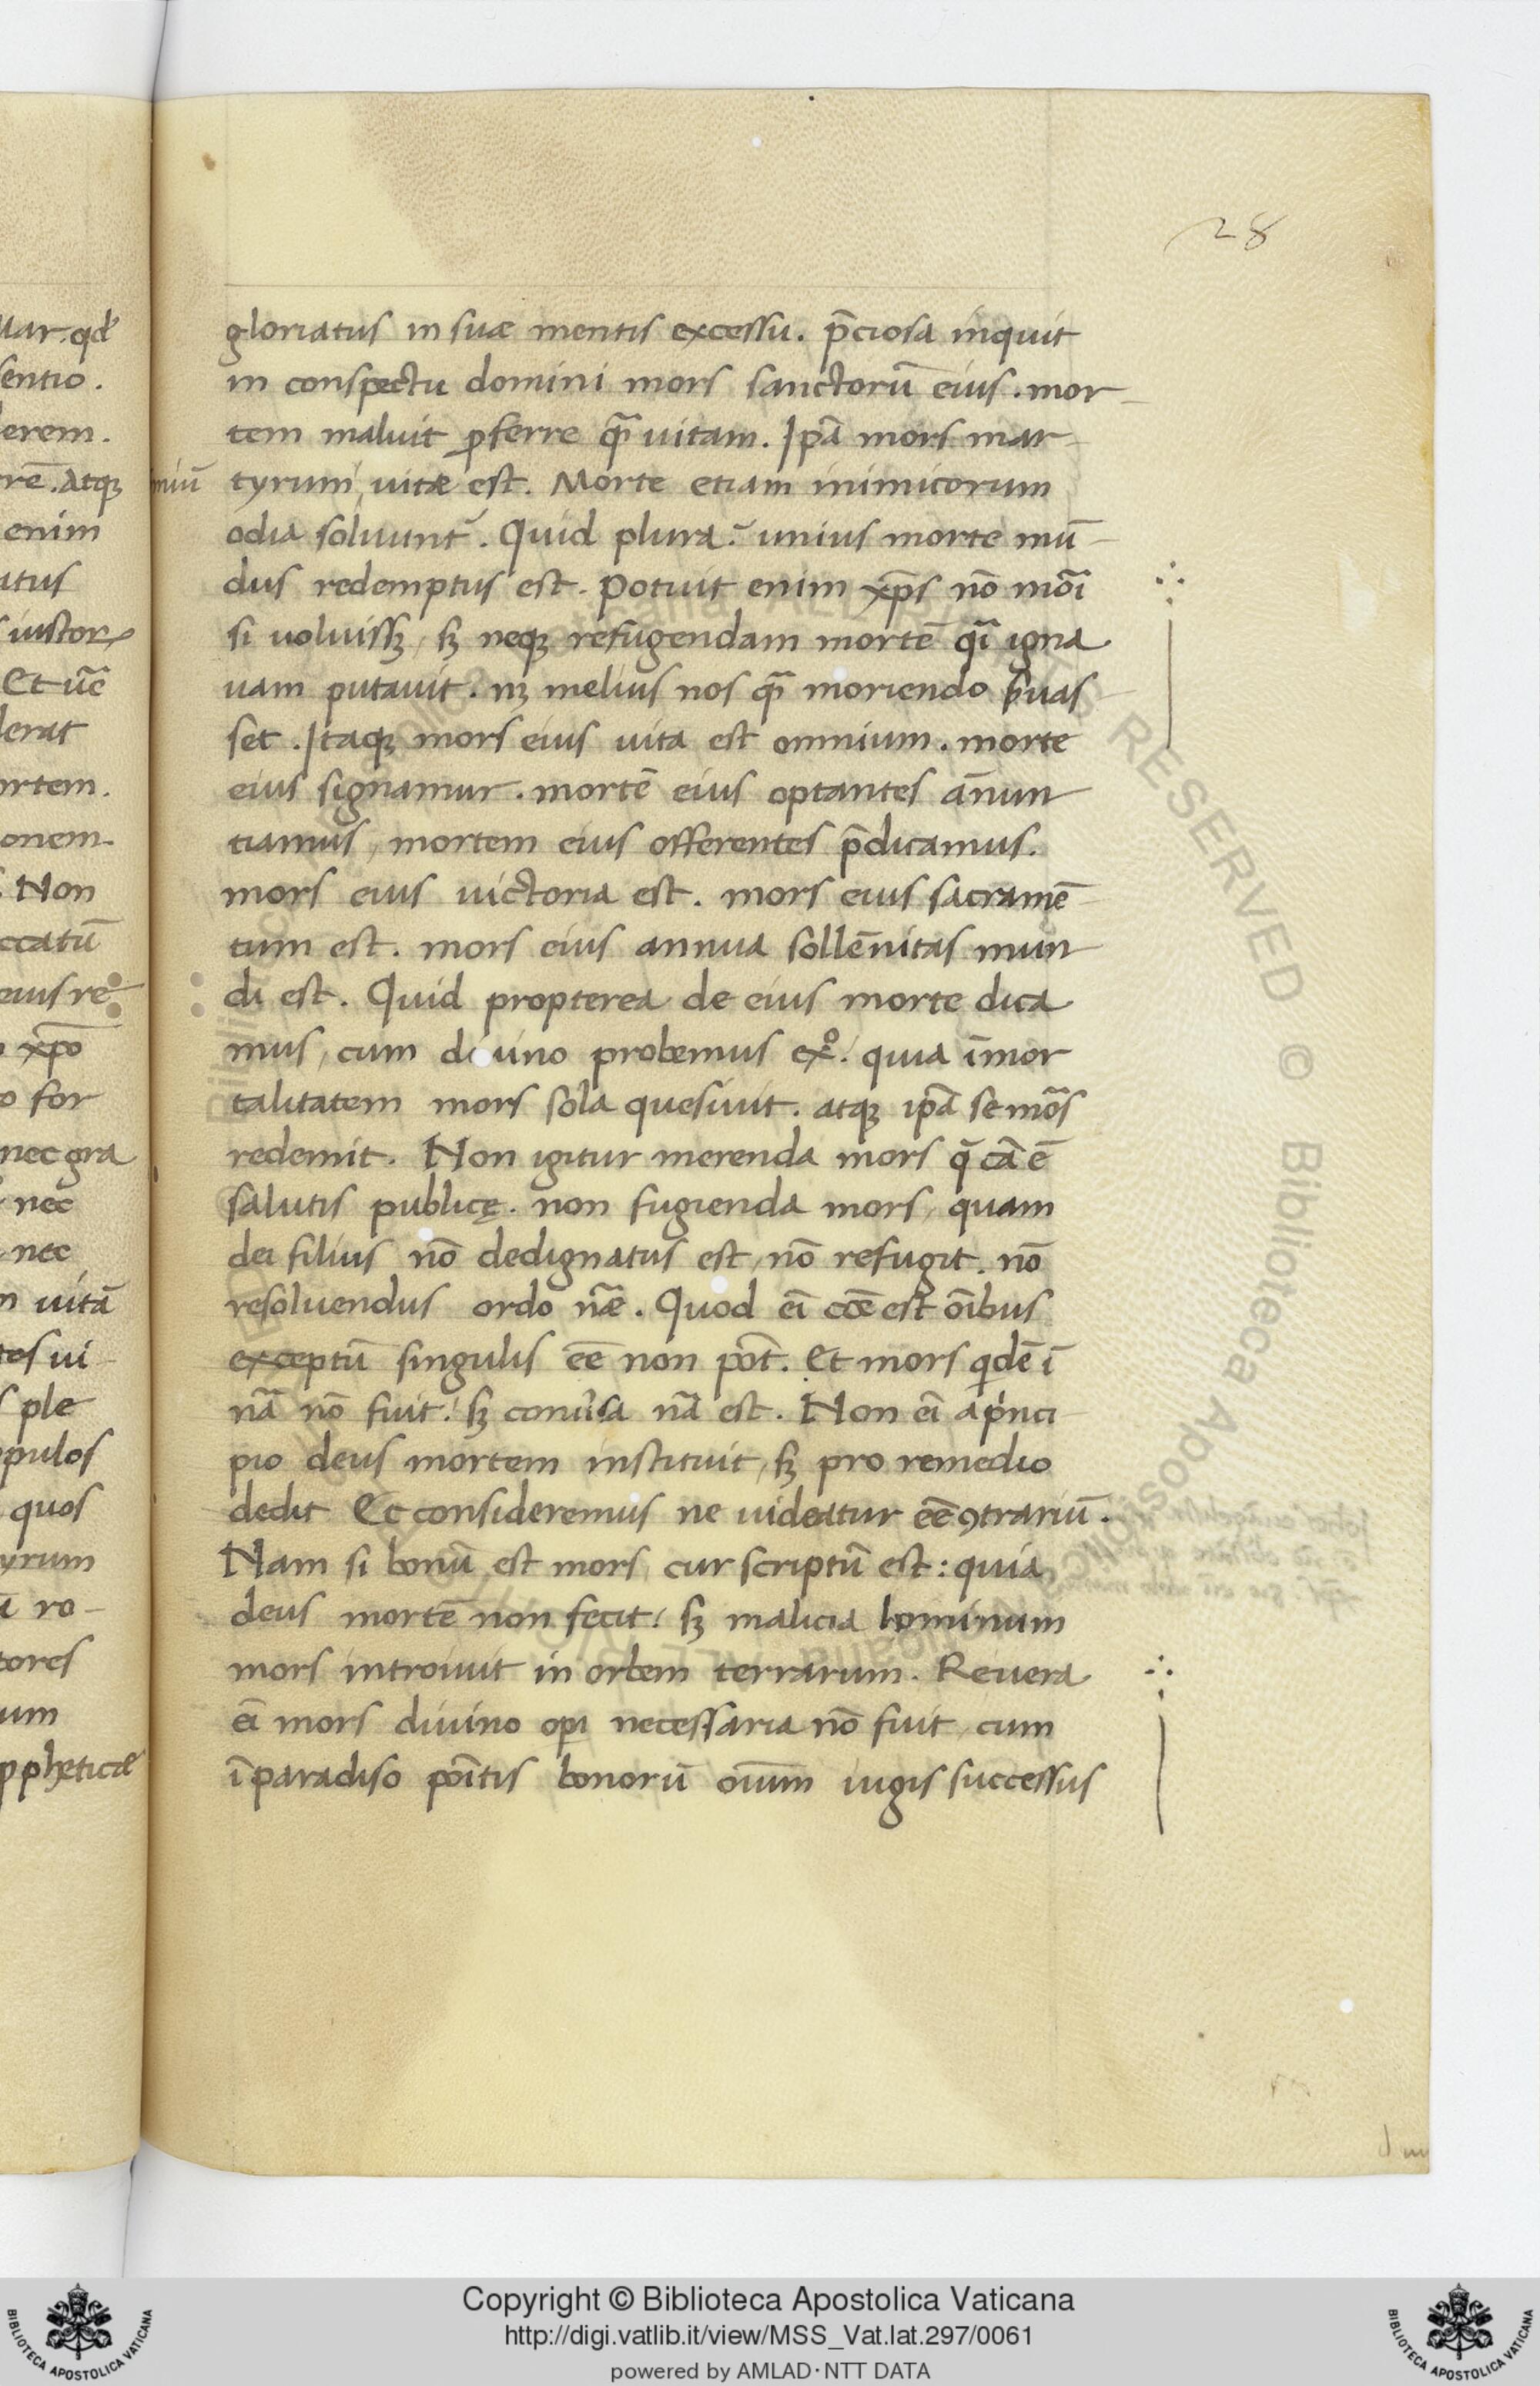 28
gloriatus in suæ mentis excessu. p̄ciosa inquit
in conspectu domini mors sanctorū eius. mor-
tem maluit p̱ferre qͣ̄ uitam. Ipā mors mar-
miū tyrum uitæ est. Morte etiam inimicorum
odia soluunt᷑. Quid plura? unius morte mū-
dus redemptus est. Potuit enim xp̄s nō mōi
si uoluissꝫ, sꝫ neqꝫ refugendam mortē qͣ̄i igna
uam putauit. nꝫ melius nos qͣ̄ moriendo s̄uas
set. Itaqꝫ mors eius uita est omnium. morte
eius signamur. mortē eius optantes ānun
tiamus, mortem eius offerentes p̄dicamus.
mors eius uictoria est. mors eius sacramē-
tum est. mors eius annua sollēnitas mun
di est. Quid propterea de eius morte dica
mus, cum diuino probemus exº. quia īmor
talitatem mors sola quesiuit. atqꝫ ipā se mōs
redemit. Non igitur merenda mors q̄ cā ē
salutis publicę. non fugienda mors, quam
dei filius nō dedignatus est, nō refugit. nō
resoluendus ordo nāe. Quod ēi cōe est oībus
exceptū singulis eē non pōt. Et mors qdē ī
nā nō fuit. sꝫ conuīsa nā est. Non ēi a pͥnci
pio deus mortem instituit, sꝫ pro remedio
dedit Et consideremus ne uideatur eē ꝯtrariū.
Nam si bonū est mors, cur scriptū est: quia
deus mortē non fecit. sꝫ malicia hominum
mors introiuit in orbem terrarum. Reuera
ēi mors diuino opi necessaria nō fuit, cum
ī paradiso pōitis bonorū oīum iugis successus
Mar. qd
sentio.
derem.
rē. Atqꝫ
enim
atus
iustoꝝ
Et uāe
derat
ortem.
onem.
Non
ccatū
eius re-
xp̄o
o for
nec gra
nec
nec
uitā
tes ui-
ple
opulos
quos
tyrum
ro-
tores
um
ꝓpheticæ
Copyright © Biblioteca Apostolica Vaticana
http://digi.vatlib.it/view/MSS_Vat.lat.297/0061
powered by AMLAD·NTT DATA
BIBLIOTECA APOSTOLICA VATICANA
BIBLIOTECA APOSTOLICA VATICANA